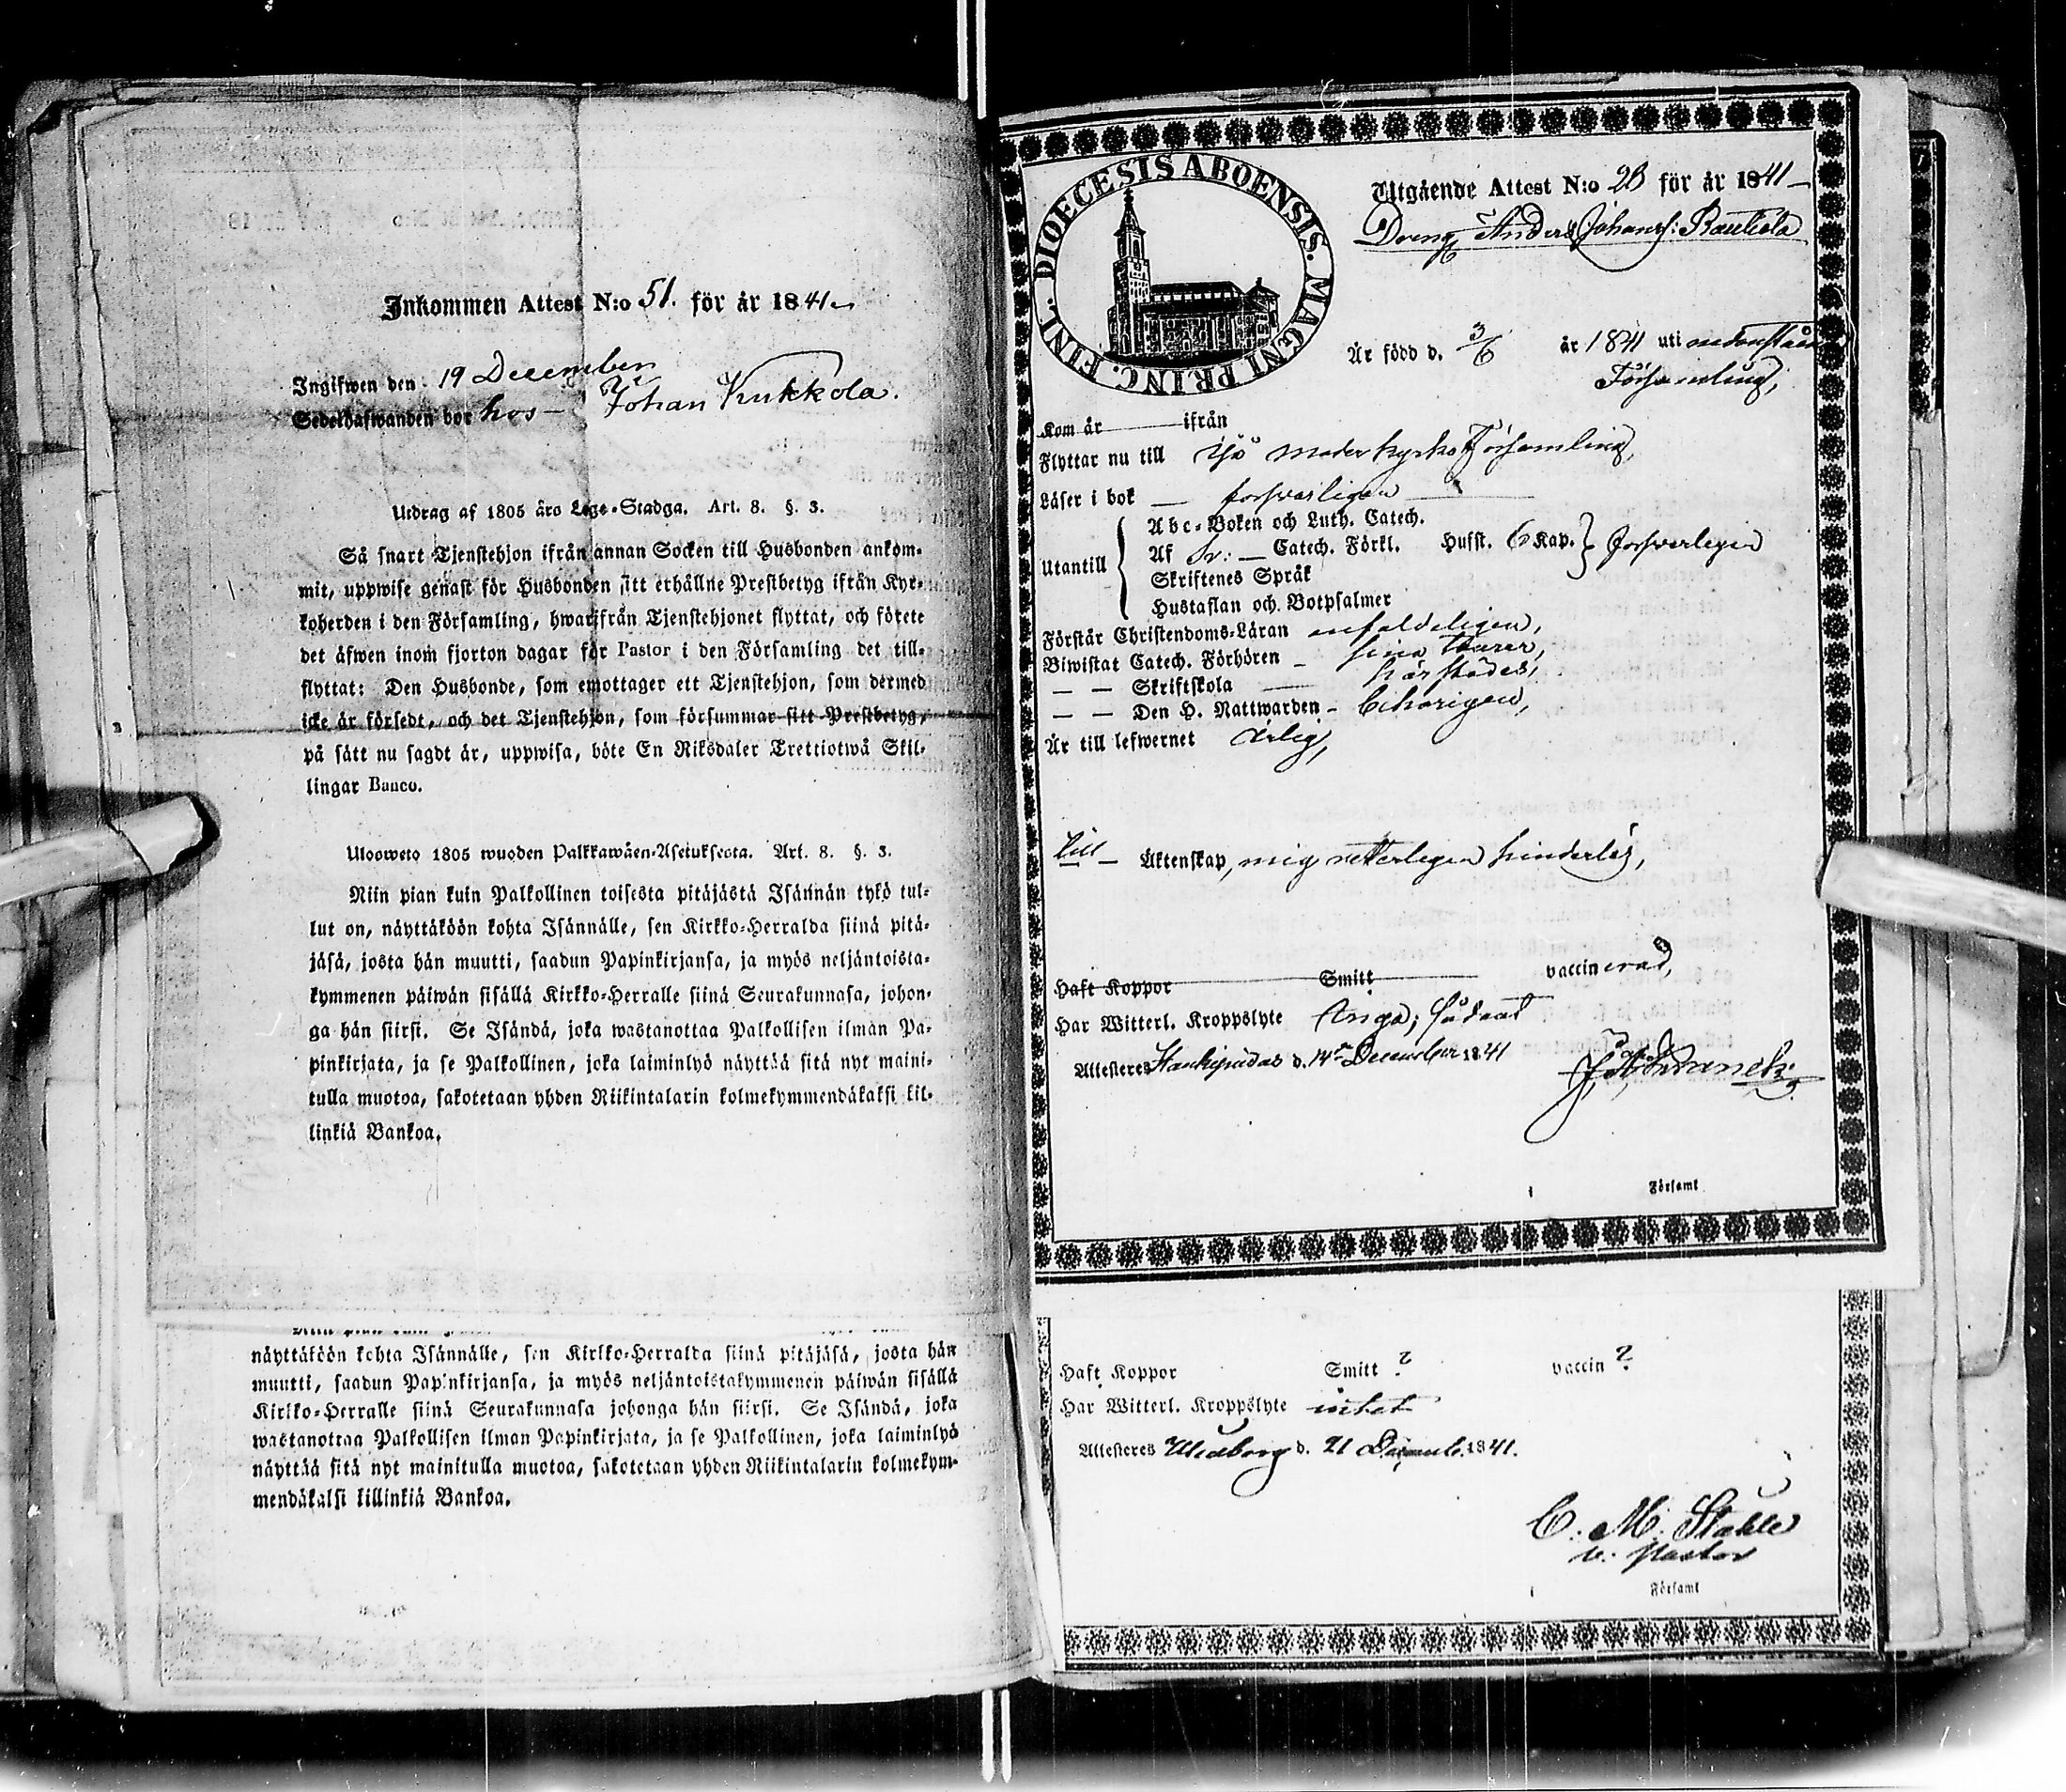 Inkommen Attest N:o 51. för år 1841
Ingifwen den 19 December
Sedelhafwanden bor hos Johan Kukkola.
Utdrag af 1805 års Lego-Stadga. Art. 8. §. 3.
Så snart Tjenstehjon ifrån annan Socken till Husbonden ankom-
mit, uppwise genast för Husbonden sitt erhållne Prestbetyg ifrån Kyr-
koherden i den Församling, hwarifrån Tjenstehjonet flyttat, och förete
det äfwen inom fjorton dagar för Pastor i den Församling det till-
flyttat: Den Husbonde, som emottager ett Tjenstehjon, som dermed
icke är försedt, och det Tjenstehjon, som försummar sitt Prestbetyg,
på sätt nu sagdt är, uppwisa, böte En Riksdaler Trettiotwå Skil-
lingar Banco.
Ulosweto 1805 wuoden Palkkawäen-Asetuksesta. Art. 8. §. 3.
Niin pian kuin Palkollinen toisesta pitäjästä Isännän tykö tul-
lut on, näyttäköön kohta Isännälle, sen Kirkko-Herralda siinä pitä-
jäsä, josta hän muutti, saadun Papinkirjansa, ja myös neljäntoista-
kymmenen päiwän sisällä Kirkko-Herralle siinä Seurakunnasa, johon-
ga hän siirsi. Se Isändä, joka wastanottaa Palkollisen ilman Pa-
pinkirjata, ja se Palkollinen, joka laiminlyö näyttää sitä nyt maini-
tulla muotoa, sakotetaan yhden Riikintalarin kolmekymmendäkaksi kil-
linkiä Bankoa.
näyttäköön kohta Isännälle, sen Kirkko-Herralda siinä pitäjäsä, josta hän
muutti, saadun Papinkirjansa, ja myös neljäntoistakymmenen päiwän sisällä
Kirkko-Herralle siinä Seurakunnasa johonga hän siirsi. Se Isändä, joka
wastanottaa Palkollisen ilman Papinkirjata, ja se Palkollinen, joka laiminlyö
näyttää sitä nyt mainitulla muotoa, sakotetaan yhden Riikintalarin kolmekym-
mendäkaksi killinkiä Bankoa.
DIOECESIS ABOENSIS. MAGNI PRINC. FINL.
Utgående Attest N:o 28 för år 1841
Dreng Anders Johanss: Rautiola
Är född d. 3/6 år 1811 uti
Församling,
Kom år ifrån
Flyttar nu till Ijo moderkyrko Församling,
Läser i bok försvarligen
Utantill
Abc-Boken och Luth. Catech.
Af Sv: Catech. Förkl. Hufst. 6 Kap. försvarligen
Skriftenes Språk
Hustaflan och Botpsalmer
Förstår Christendoms-Läran enfaldeligen,
Biwistat Catech. Förhören sina
— — Skriftskola härstädes,
— — Den H. Nattwarden - behörigen,
Är till lefwernet ärlig,
Till Äktenskap, mig vetterligen hinderlös,
Haft Koppor Smitt vaccinerad,
Har Witterl. Kroppslyte Inga; sådant
Attesteres Haukipudas d. 14 December 1841
Församl
Haft Koppor Smitt ? vaccin ?
Har Witterl. Kroppslyte intet
Attesteres Uleåborg d. 21 Decemb. 1841.
C. M. Ståhle
v. Pastor
Församl